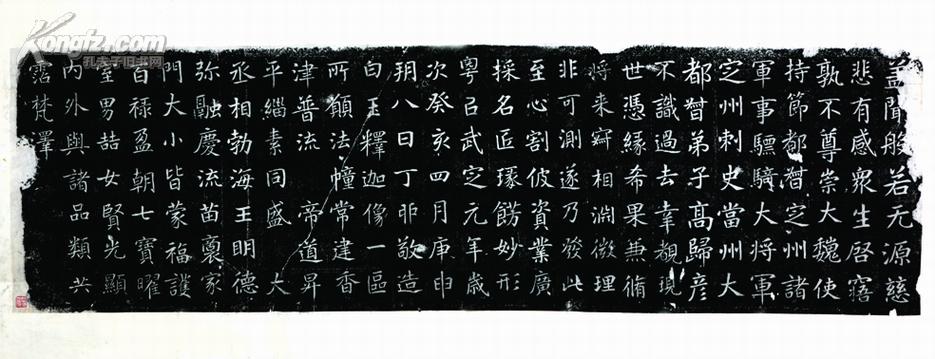 盖聞般若无源慈
悲有感衆生啓寤
孰不尊崇大魏使
持節都督定州諸
軍事驃騎大将軍
定州刺史當州大
都督弟子髙歸彦
不識過去幸覩現
世憑緣希果兼脩
将来寂相淵微理
非可測遂乃發此
至心割彼資業廣
採名匠瑑餝妙形
粤以武定元年歳
次癸亥四月庚申
朔八日丁卯敬造
白玉釋迦像一區
所願法幢常建香
津普流 帝道昇
平緇素同盛 大
丞相勃海王明德
弥融慶流苗裔家
門大小皆蒙福護
百禄盈朝七寶曜
室男喆女賢光顯
内外與諸品類共
霑梵澤
Kongfz.com
孔夫子旧书网